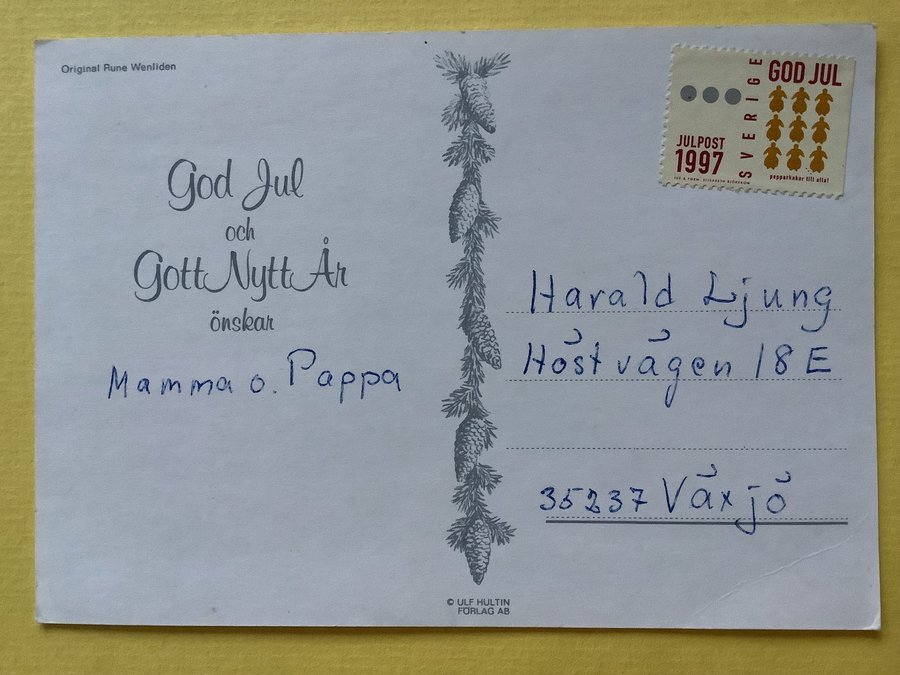 Original Rune Wenliden
God Jul
och
Gott Nytt År
önskar
Mamma o. Pappa
© ULF HULTIN
FÖRLAG AB
SVERIGE
GOD JUL
JULPOST
1997
pepparkakor till alla!
Harald Ljung
Höstvägen 18 E
35237 Växjö